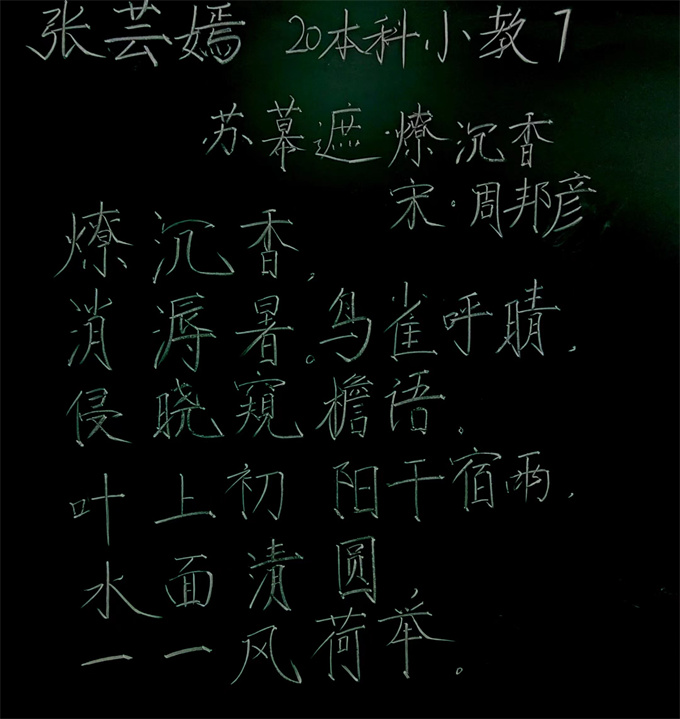 张芸嫣 20本科小教7
苏幕遮·燎沉香
宋·周邦彦
燎沉香,
消溽暑。鸟雀呼晴,
侵晓窥檐语。
叶上初阳干宿雨,
水面清圆,
一一风荷举。